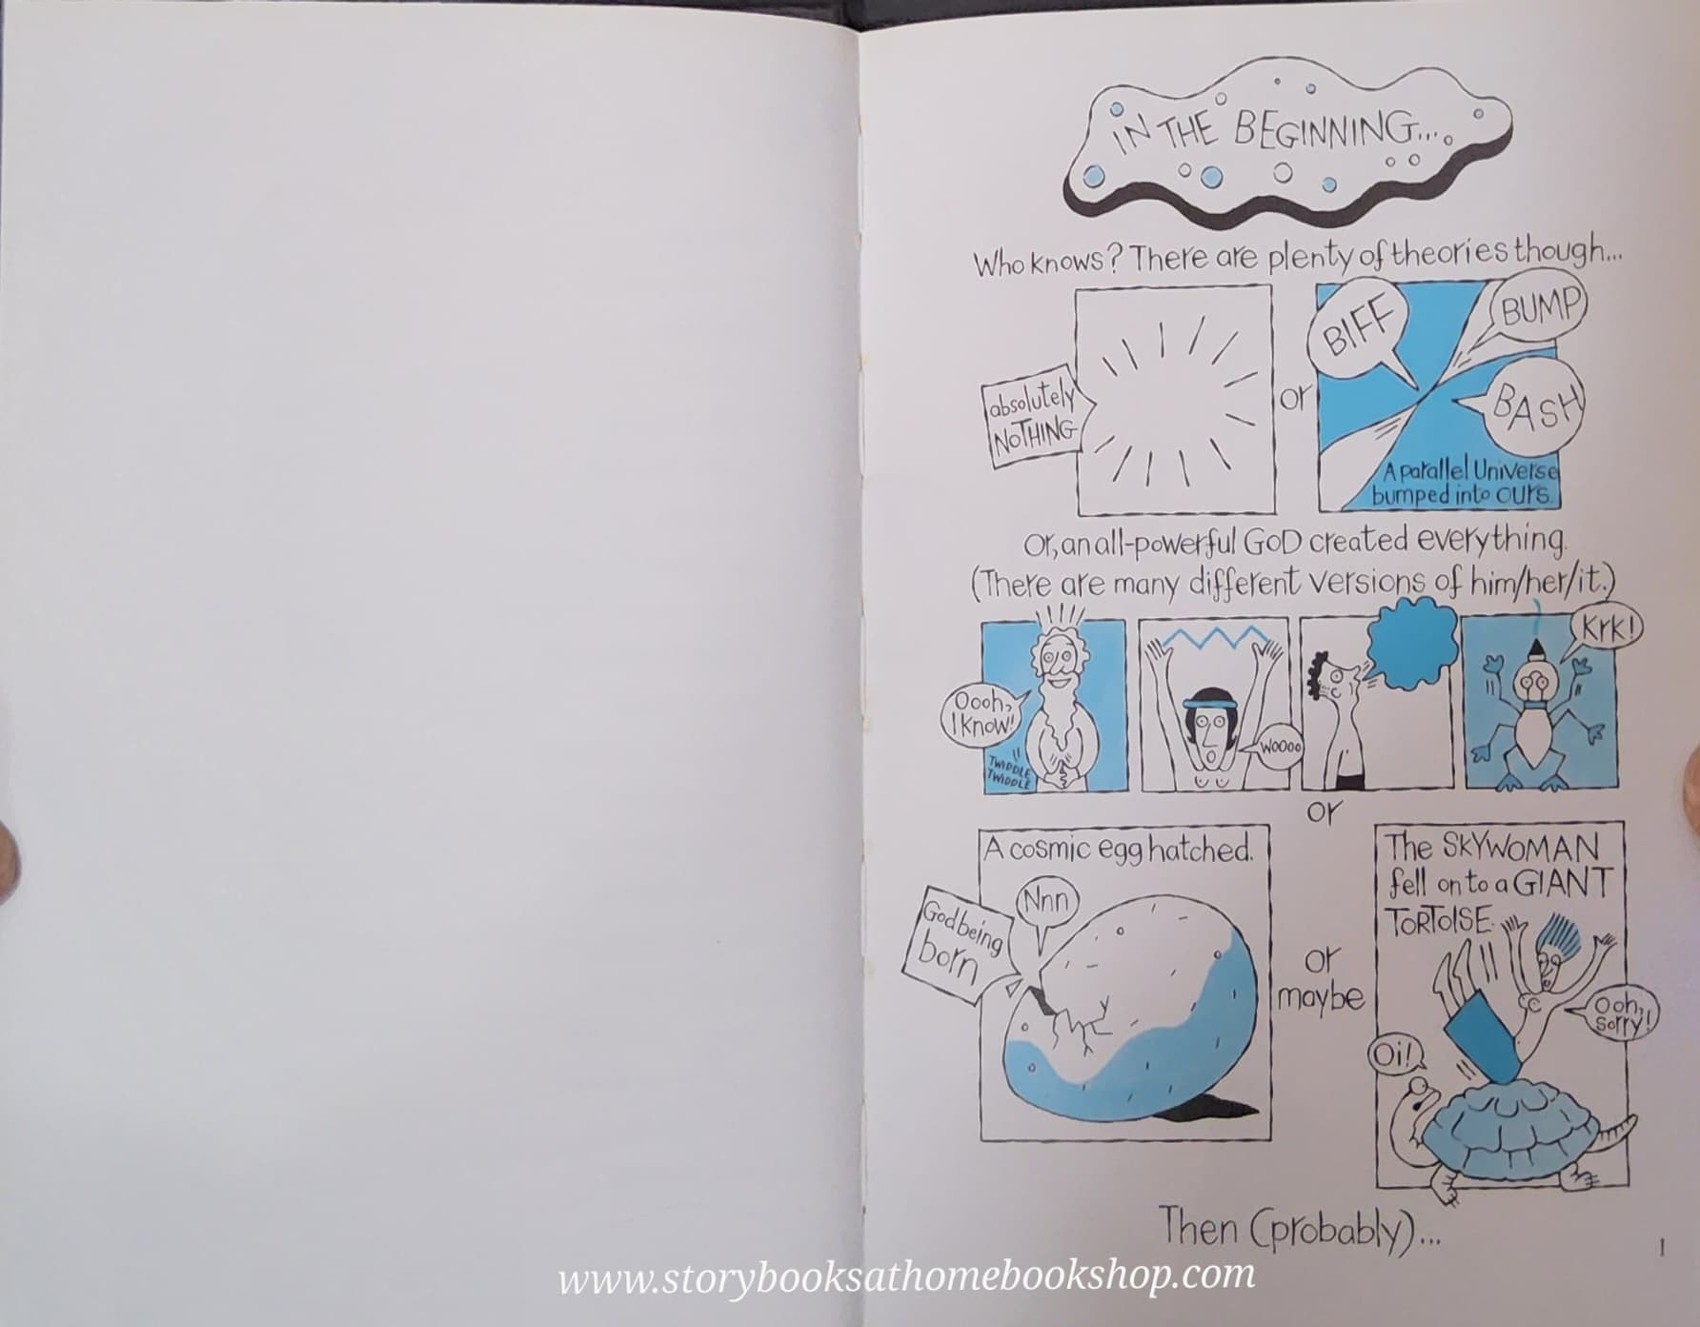 IN THE BEGINNING...
Who knows? There are plenty of theories though...
absolutely
NOTHING
or
BIFF
BUMP
BASH
A parallel Universe
bumped into OURS.
Or, an all-powerful GOD created everything.
(There are many different versions of him/her/it.)
Oooh,
I know!
TWIDDLE
TWIDDLE
Woooo
Krk!
or
A cosmic egg hatched.
God being
born
Nnn
or
maybe
The SKYWOMAN
fell on to a GIANT
TORTOISE.
Ooh,
sorry!
Oi!
Then (probably)...
1
www.storybooksathomebookshop.com